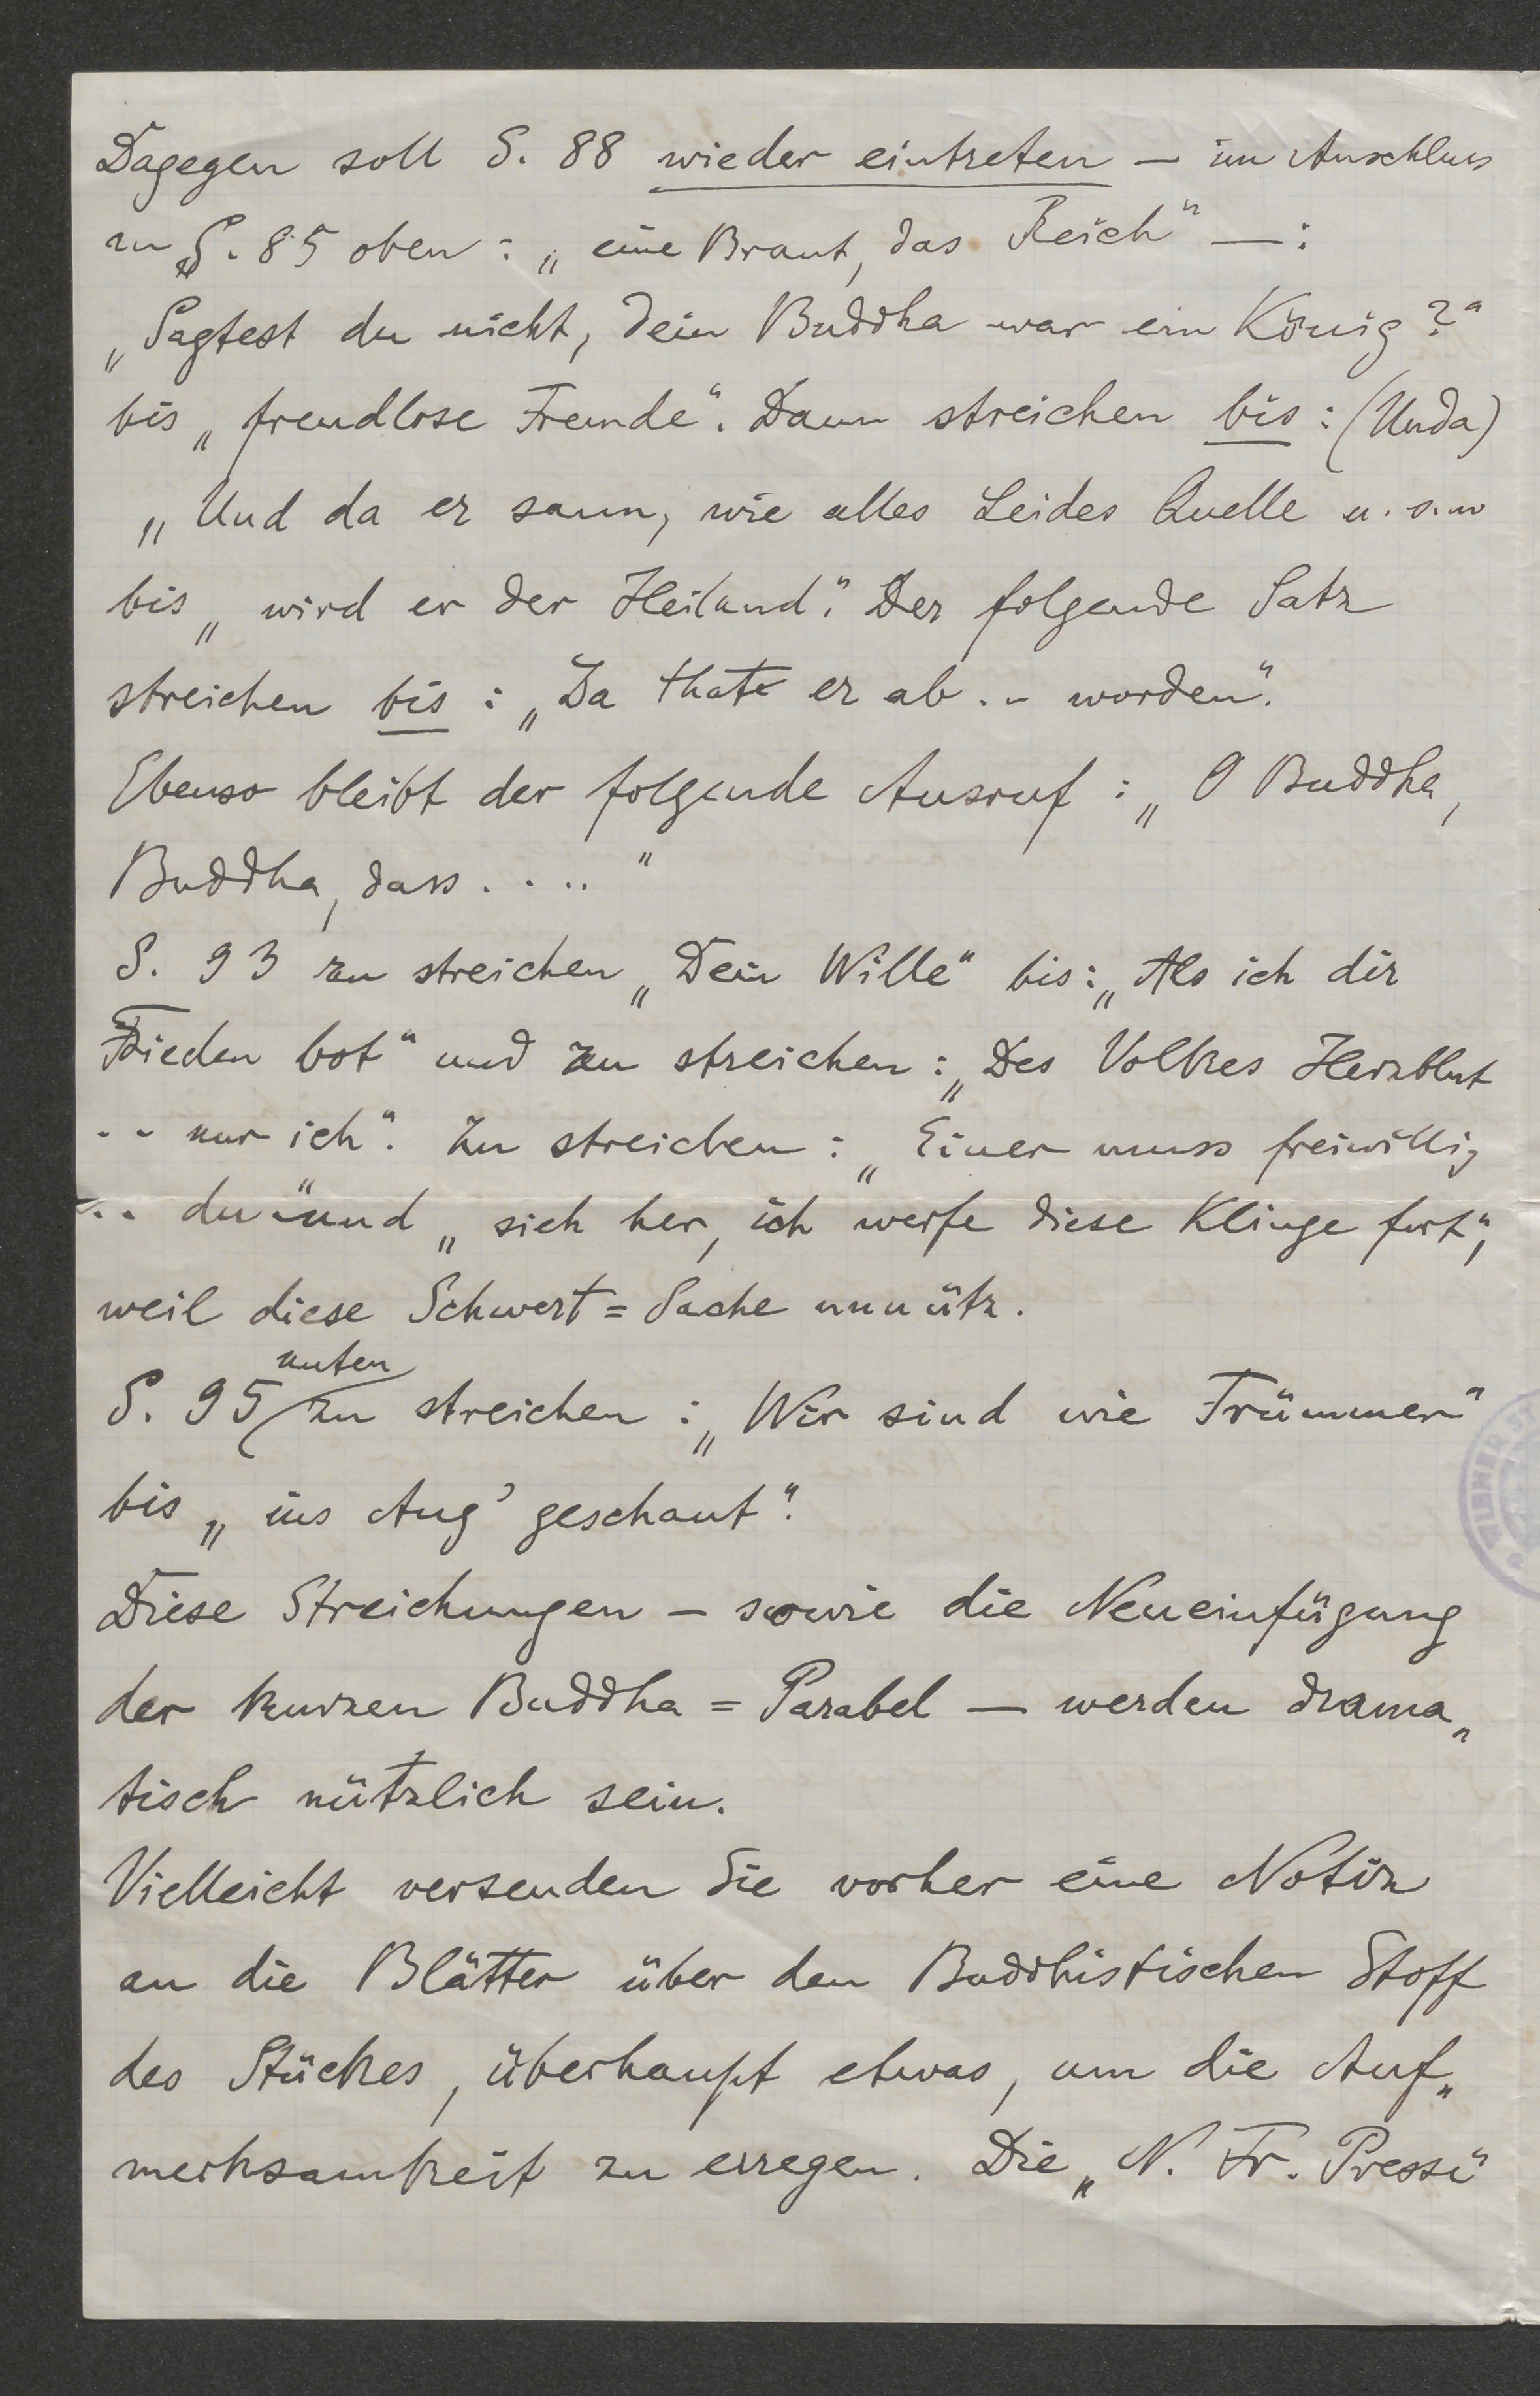 Dagegen soll S. 88 wieder eintreten – im Anschluss
zu S. 85 oben: „eine Braut, das Reich" —:
„Sagtest du nicht, dein Buddha war ein König?"
bis „freudlose Fremde". Dann streichen bis: (Unda)
„Und da er sann, wie alles Leides Quelle u. s. w
bis „wird er der Heiland". Der folgende Satz
streichen bis: „Da that er ab .. worden".
Ebenso bleibt der folgende Ausruf: „O Buddha,
Buddha, dass . . . ."
S. 93 zu streichen „Dein Wille" bis: „Als ich dir
Frieden bot" und zu streichen: „Des Volkes Herzblut
.. nur ich". Zu streichen: „Einer muss freiwillig
.. du" und „sieh her, ich werfe diese Klinge fort",
weil diese Schwert=Sache unnütz.
S. 95 unten zu streichen: „Wir sind wie Trümmer"
bis „ins Aug' geschaut".
Diese Streichungen – sowie die Neueinfügung
der kurzen Buddha=Parabel – werden drama„
tisch nützlich sein.
Vielleicht versenden Sie vorher eine Notiz
an die Blätter über den Buddhistischen Stoff
des Stückes, überhaupt etwas, um die Auf„
merksamkeit zu erregen. Die „N. Fr. Presse"
WIENER